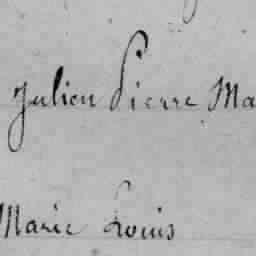 Julien Pierre Ma
Marie Louis